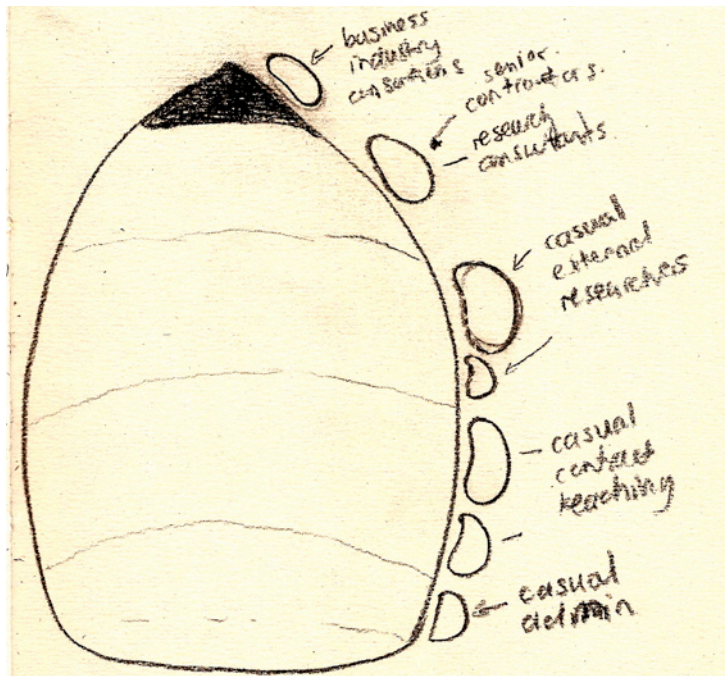 business
industry
consortiums
senior
contractors.
research
consultants.
casual
external
researchers
casual
contract
teaching
casual
admin